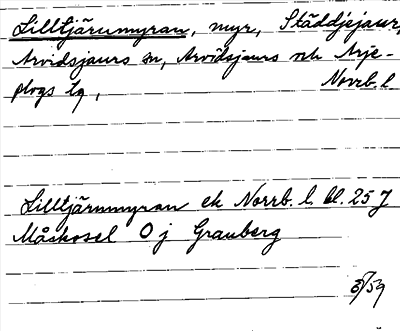 Lilltjärnmyran, myr, Städdjejaur,
Arvidsjaurs sn, Arvidsjaurs och Arje-
plogs lg, Norrb. l
Lilltjärnmyran ek Norrb. l. bl. 25 J
Måskosel O j Granberg
/59